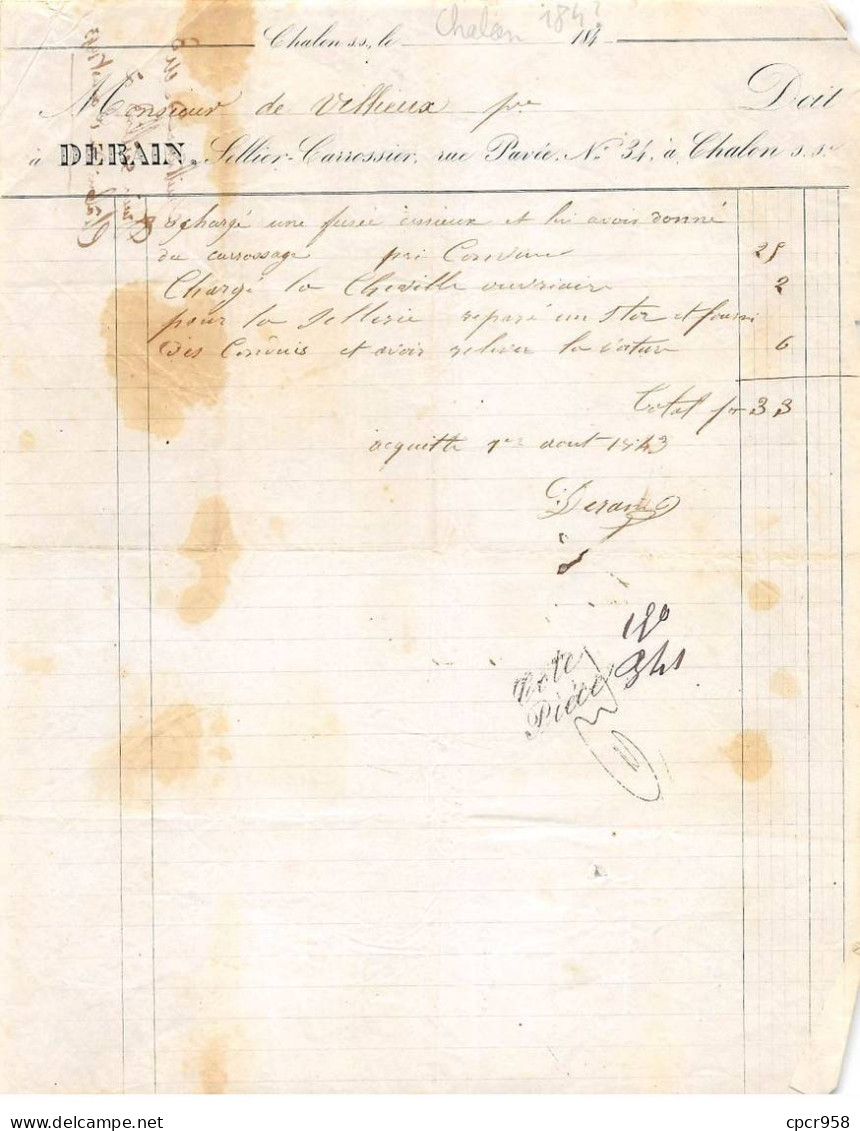 Chalon 184
Chalon s.s., le 184
Monsieur de Villieux pre Doit
à DERAIN, Sellier-Carrossier, rue Pavée, No. 34, à Chalon s.s.
chargé une fusée essieux et lui avois donné
du carrossage pri Convenu 25
Chargé la Cheville ouvriair 2
pour la Sellerie reparé un Stor et fourni
des et avoir la voiture 6
Total fr 33
acquitté 1er aout 1843
Derain
Cote 190
Pièce 341
cpcr958